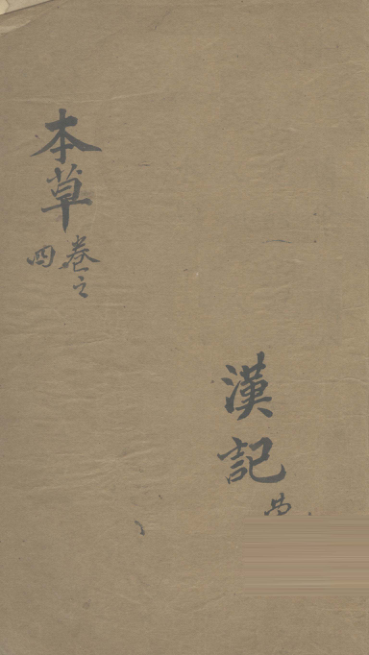 漢記
本草
卷之
四